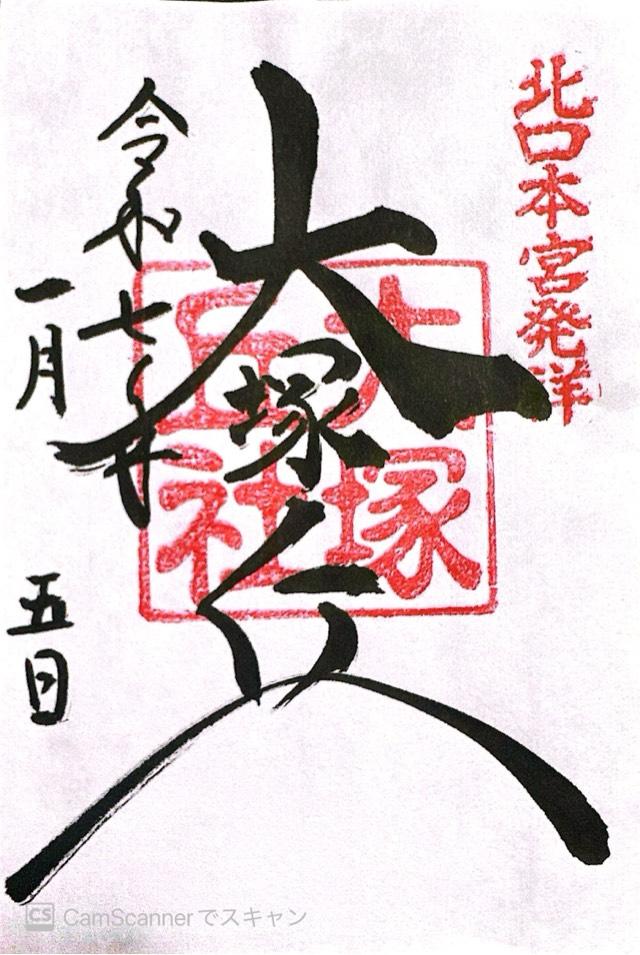 北口本宮発祥
大塚丘
大塚
丘社
令和七年
一月 五日
CS CamScannerでスキャン